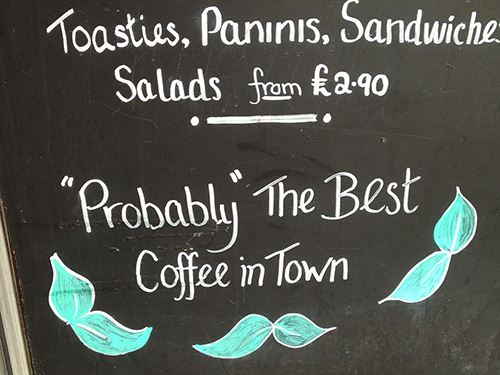 Toasties, Paninis, Sandwiches
Salads from £2.90
"Probably" The Best
Coffee in Town